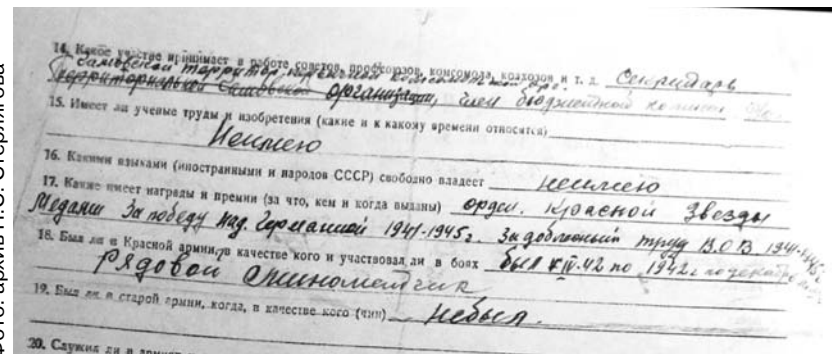 14. Какое участие принимает в работе советов, профсоюзов, комсомола, колхозов и т. д. Секритарь
территориальной организации, член бюджетной
15. Имеет ли ученые труды и изобретения (какие и к какому времени относятся)
Неимею
16. Какими языками (иностранными и народов СССР) свободно владеет неимею
17. Какие имеет награды и премии (за что, кем и когда выданы) орден. Красной Звезды
Медали За победу над. Германией 1941-1945г. За доблестный труд В.О.В. 1941-1945г
18. Был ли в Красной армии, в качестве кого и участвовал ли в боях был с IV.42 по 1942г.
Рядовой Минометчик
19. Был ли в старой армии, когда, в качестве кого (чин) небыл.
20. Служил ли в армиях
Фото: архив Н.С. Стерлягова